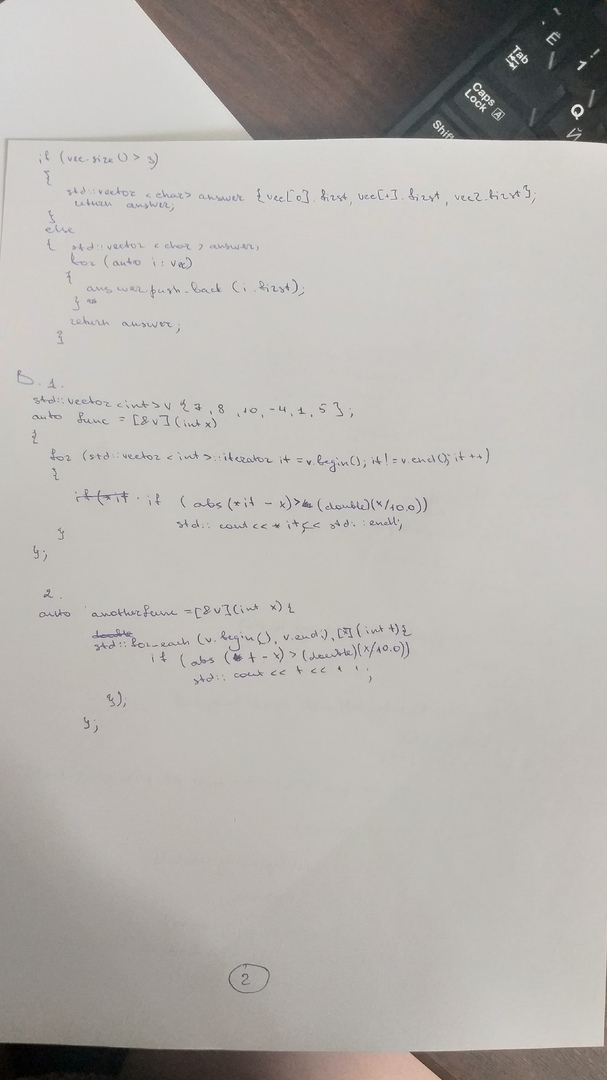 Tab
Ё
!
1
Caps
Lock
A
Q
Й
Shift
if (vec.size() > 3)
{
std::vector <char> answer {vec[0].first, vec[1].first, vec2.first};
return answer;
}
else
{ std::vector <char> answer;
for (auto i : vec)
{
answer.push_back (i.first);
}
return answer;
}
B. 1.
std::vector <int> v {7, 8, 10, -4, 1, 5};
auto func = [&v](int x)
{
for (std::vector <int>::iterator it = v.begin(); it != v.end(); it ++)
{
if (*it if (abs (*it - x) > (double)(x/10.0))
std::cout << *it << std::endl;
}
};
2.
auto anotherfunc = [&v](int x) {
double
std::for_each (v.begin(), v.end(), [x](int t){
if (abs (t - x) > (double)(x/10.0))
std::cout << t << ' ';
});
};
2